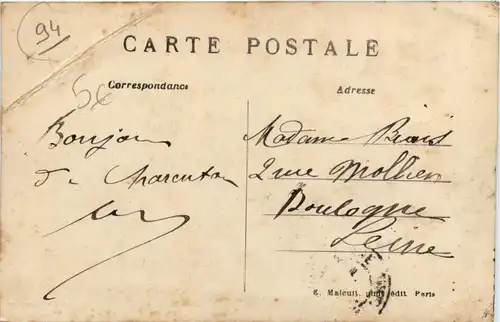 94
CARTE POSTALE
Correspondance
Adresse
5€
Bonjour
de Charenton
Madame
2 rue Mollien
Boulogne
Seine
E. Malcuit, édit. Paris